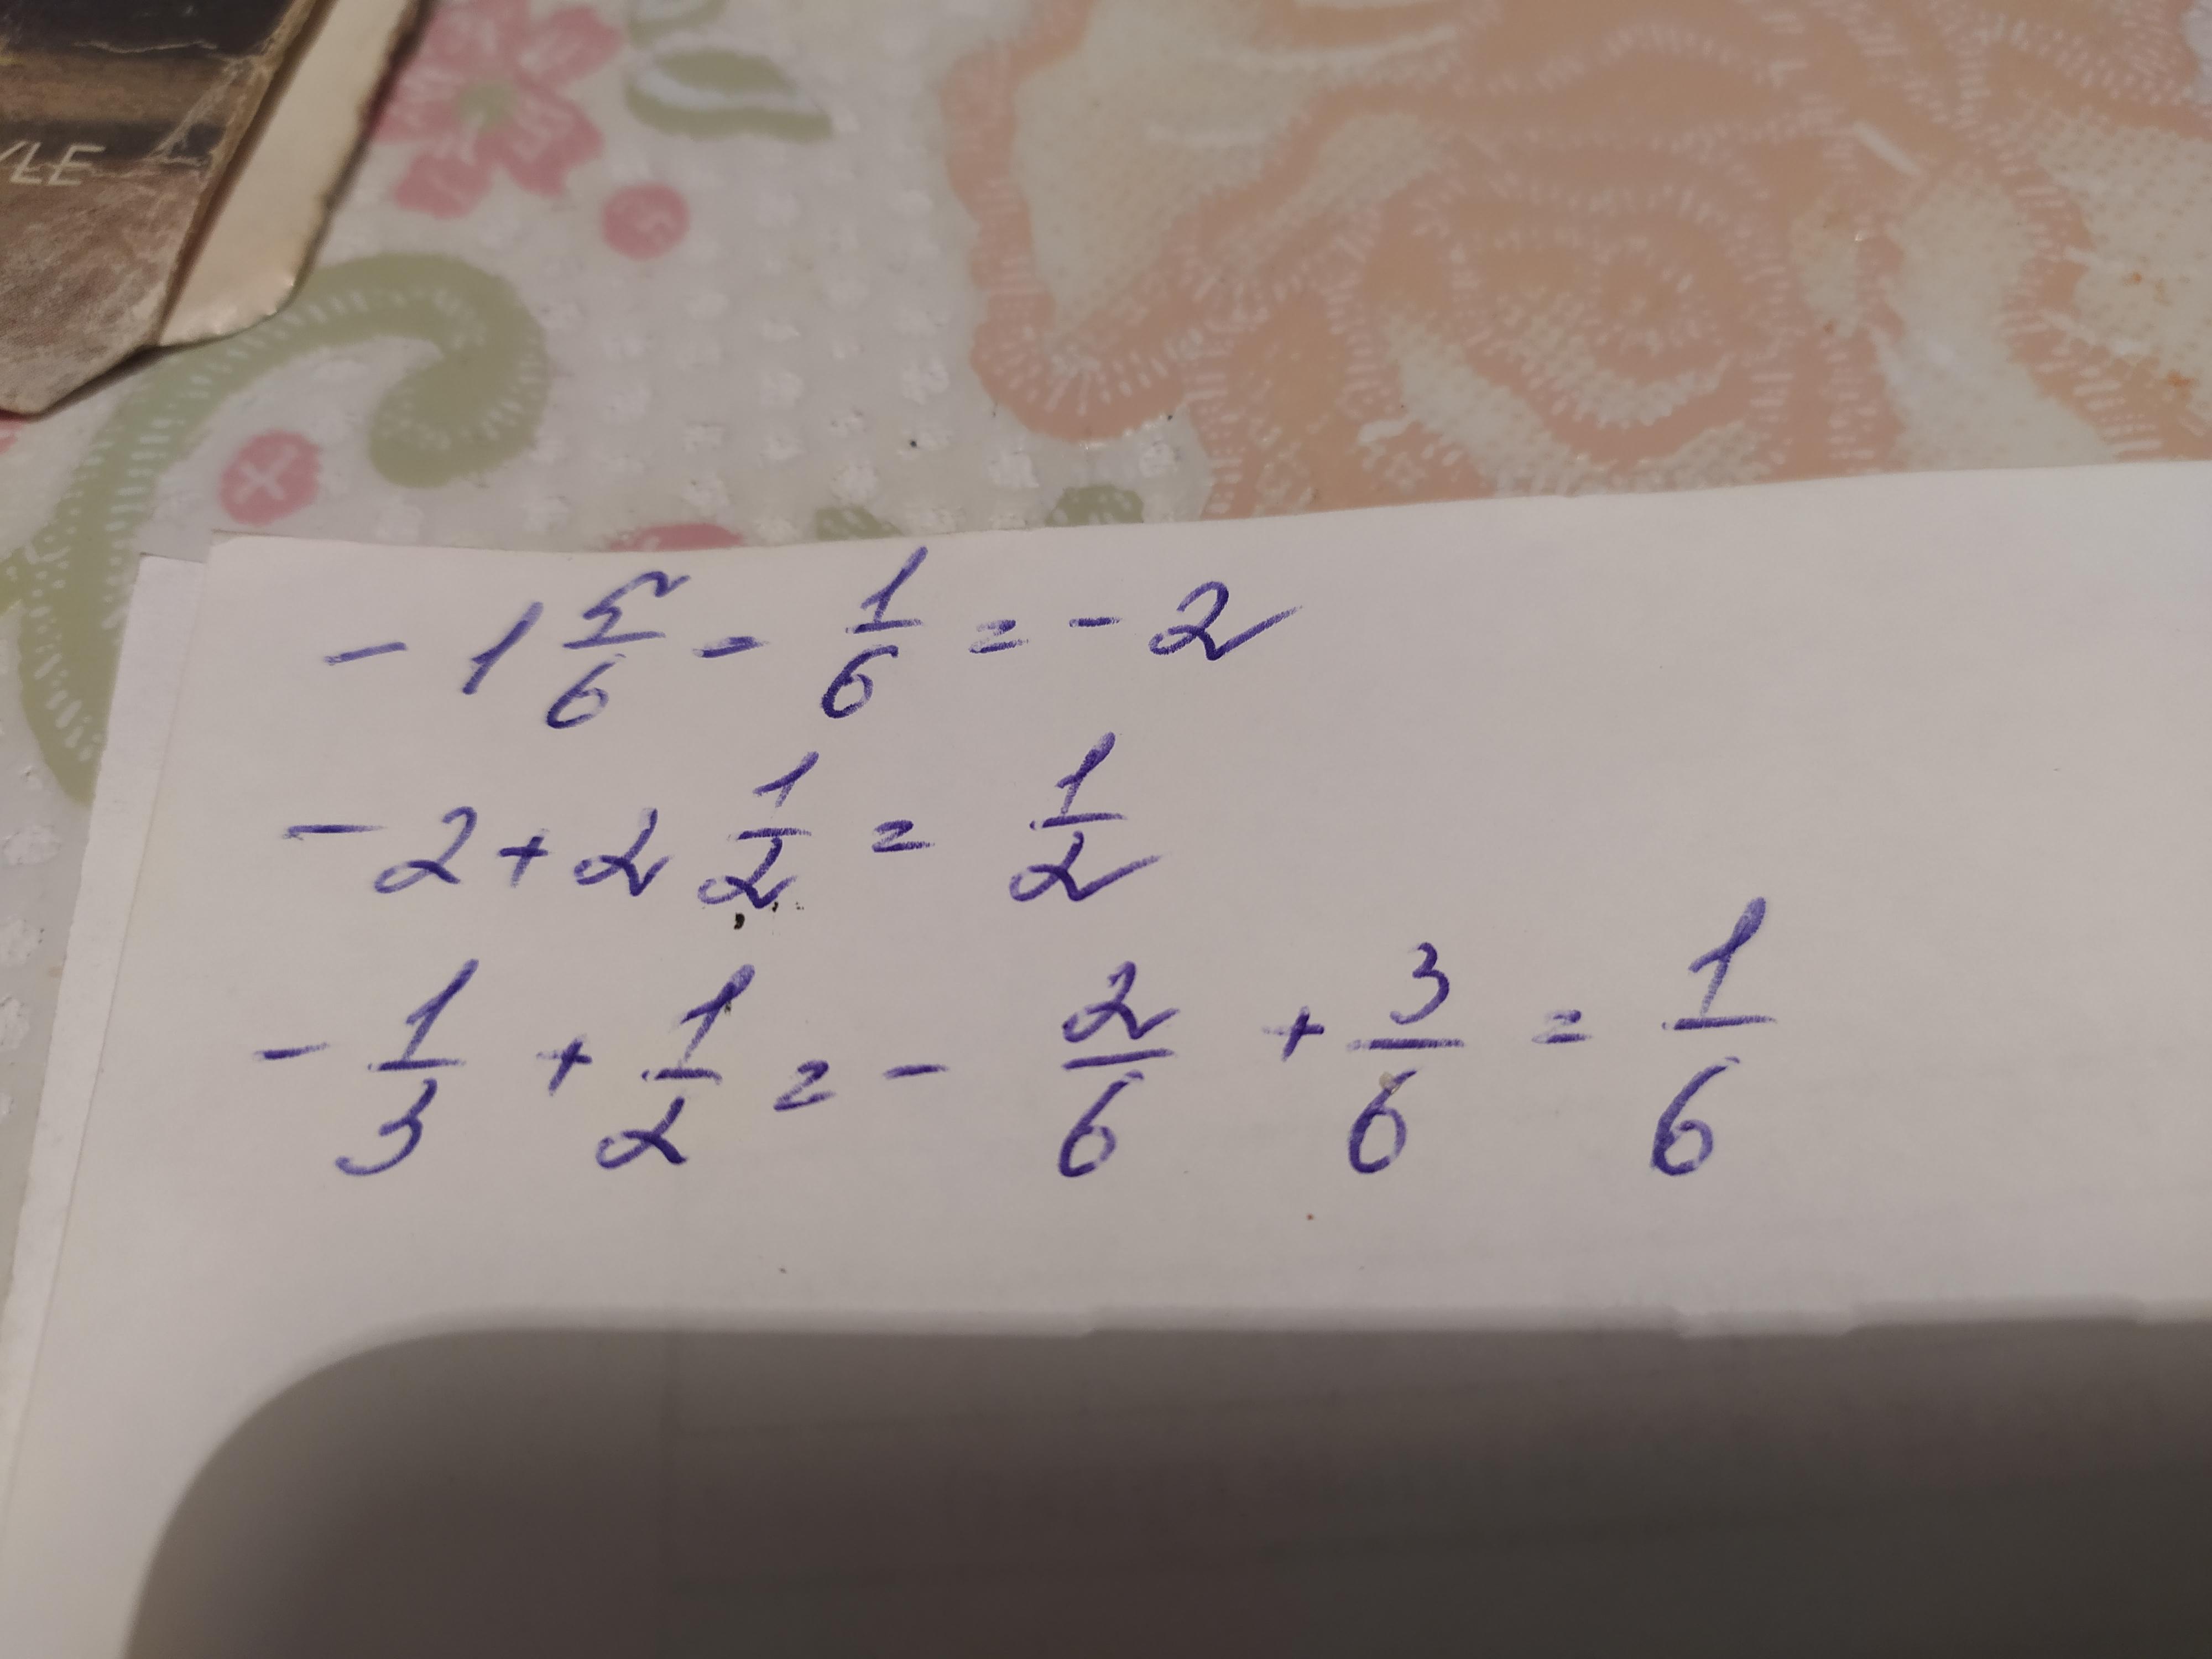 YLE
- 1 5/6 - 1/6 = - 2
- 2 + 2 1/2 = 1/2
- 1/3 + 1/2 = - 2/6 + 3/6 = 1/6